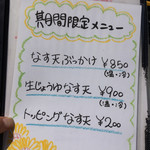 期日間限定メニュー
なす天ぶっかけ ¥850
(温・冷)
生じょうゆなす天 ¥900
(温・冷)
トッピングなす天 ¥200